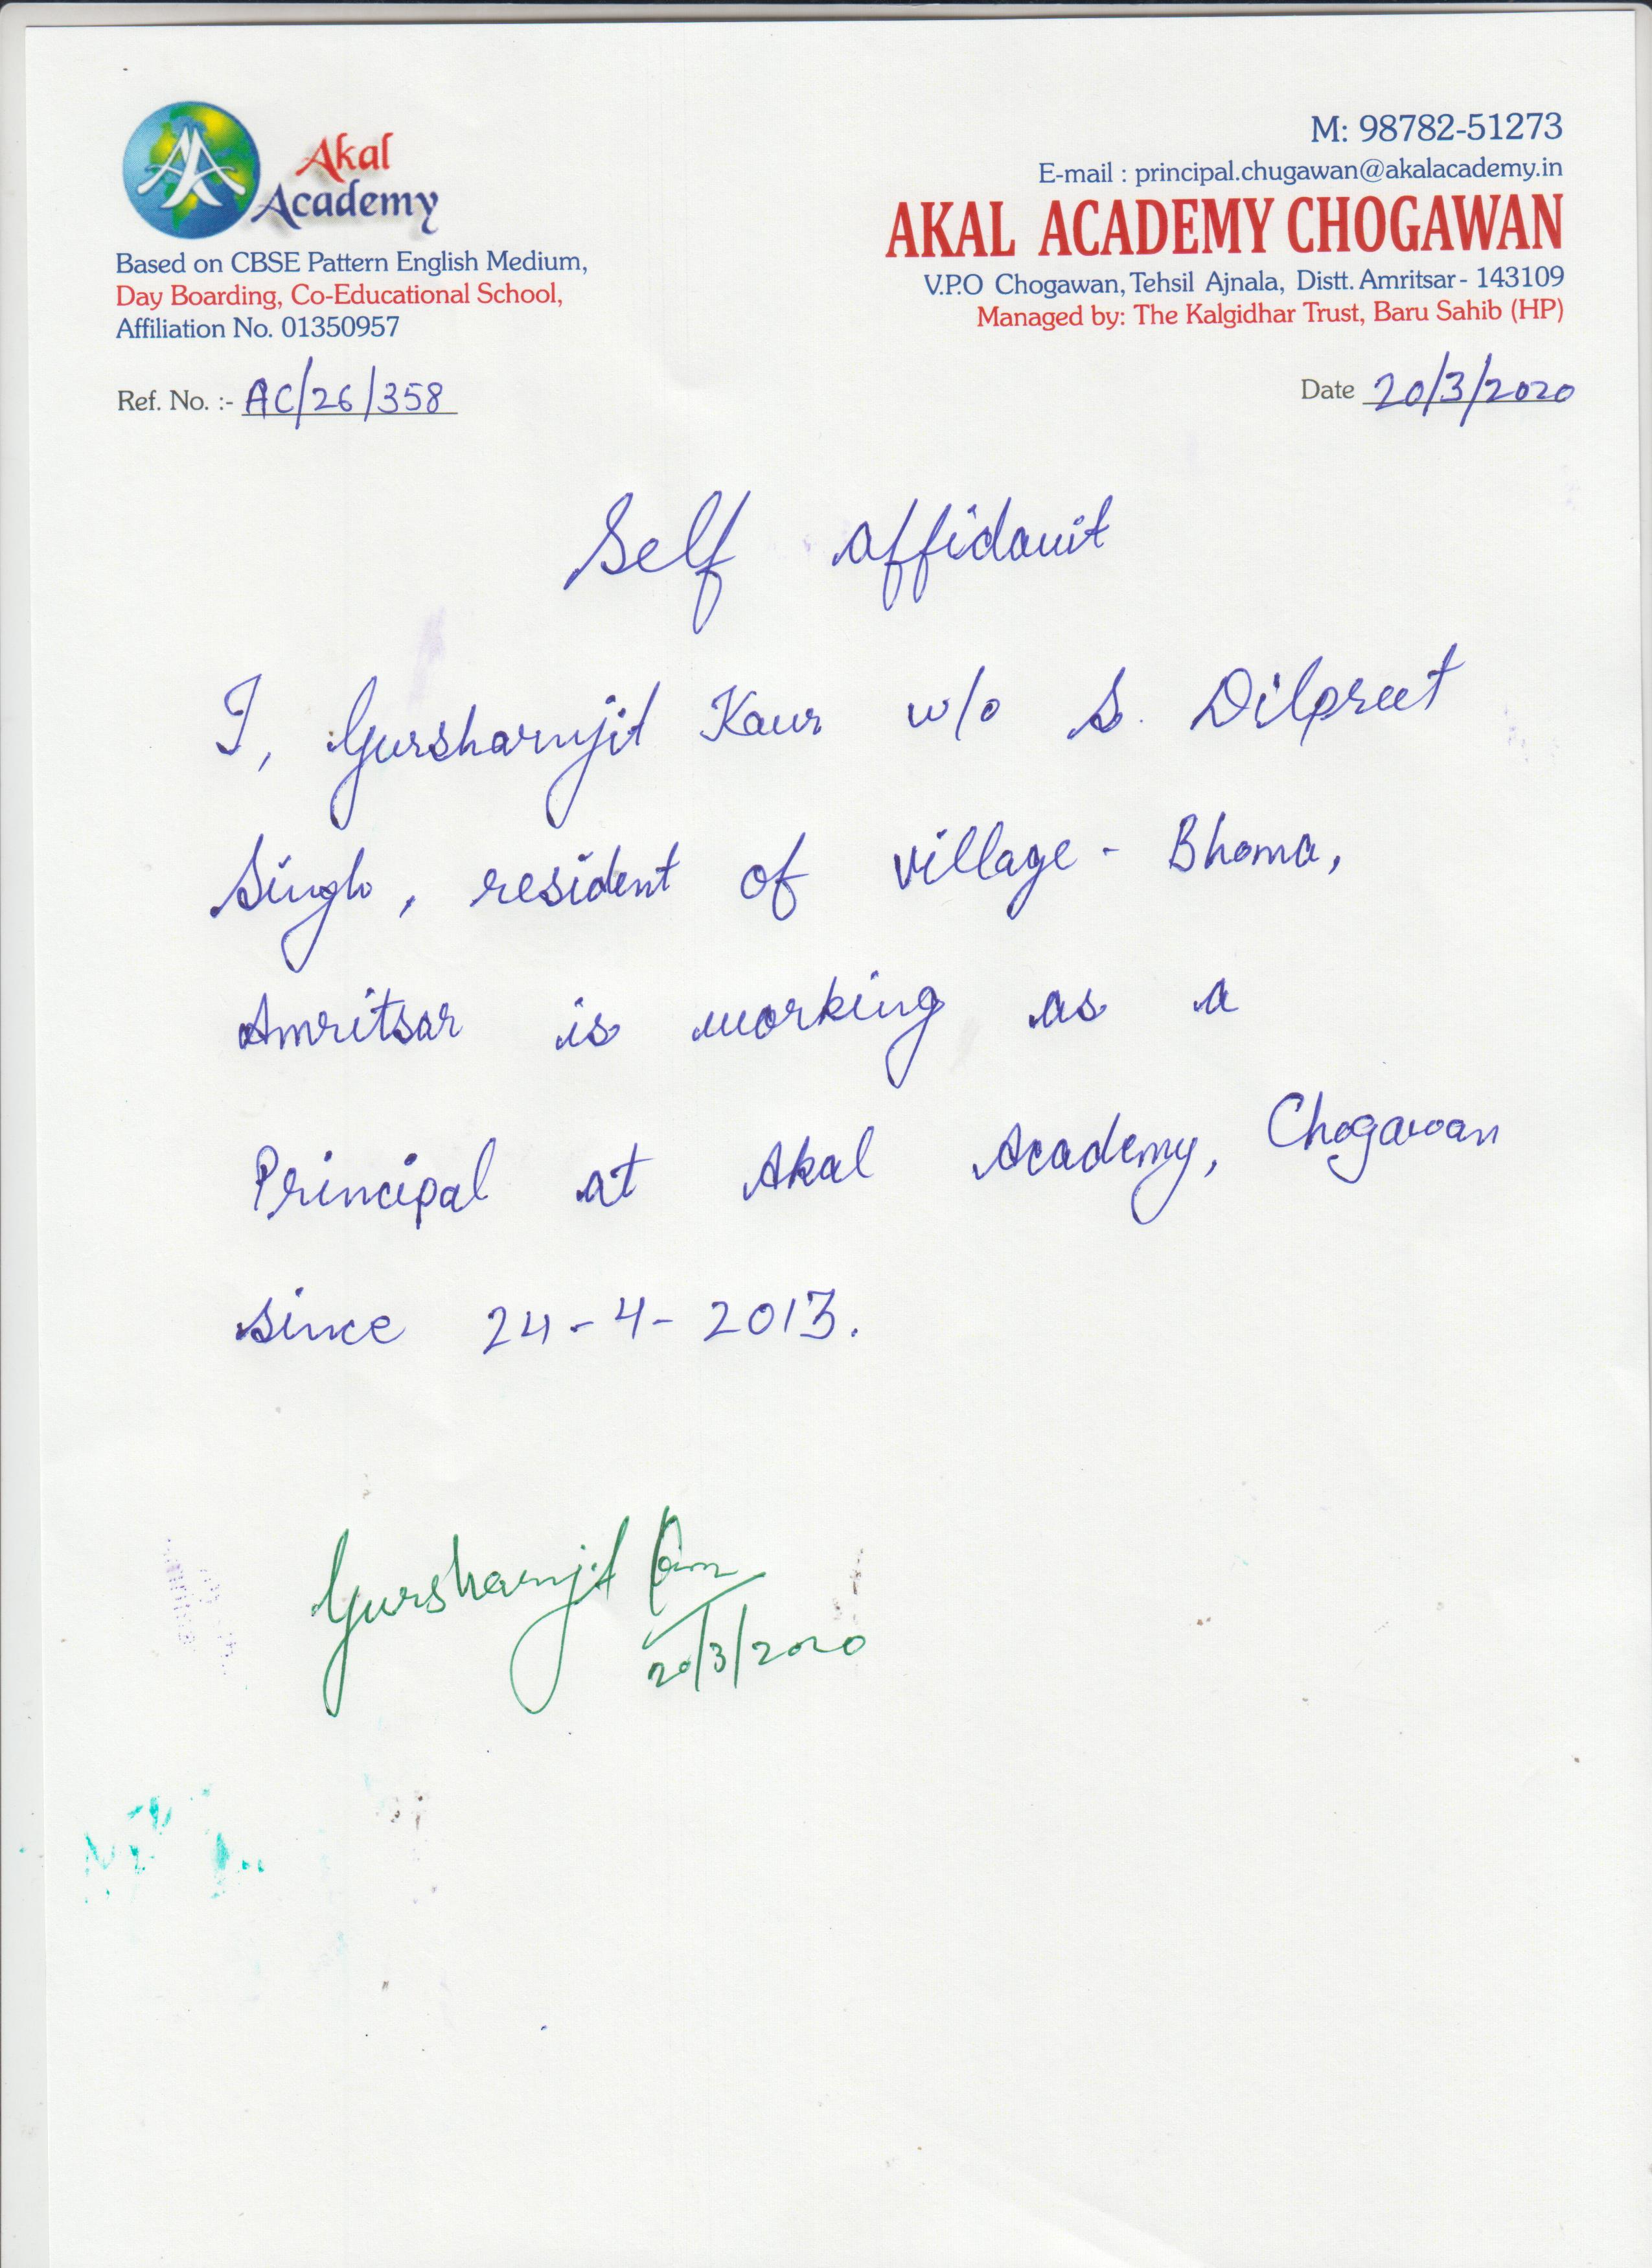 Akal
Academy
Based on CBSE Pattern English Medium,
Day Boarding, Co-Educational School,
Affiliation No. 01350957
M: 98782-51273
E-mail : principal.chugawan@akalacademy.in
AKAL ACADEMY CHOGAWAN
V.P.O Chogawan, Tehsil Ajnala, Distt. Amritsar - 143109
Managed by: The Kalgidhar Trust, Baru Sahib (HP)
Ref. No. :- AC/26/358
Date 20/3/2020
Self affidavit
I, Gursharnjit Kaur w/o S. Dilpreet
Singh, resident of village - Bhoma,
Amritsar is working as a
Principal at Akal Academy, Chogawan
since 24-4-2013.
Gursharnjit Kaur
20/3/2020